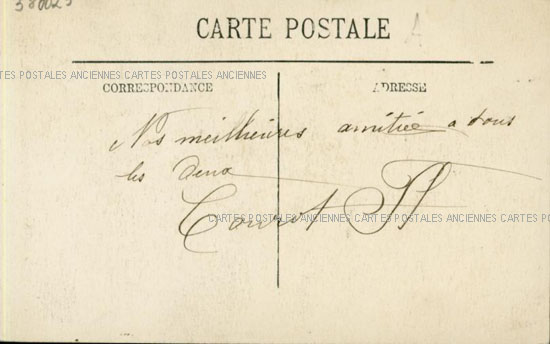 CARTE POSTALE
CARTES POSTALES ANCIENNES CARTES POSTALES ANCIENNES
CORRESPONDANCE
ADRESSE
Nos meilheures amitiée a tous
les deux
CARTES POSTALES ANCIENNES CARTES POSTALES ANCIENNES CARTES PO